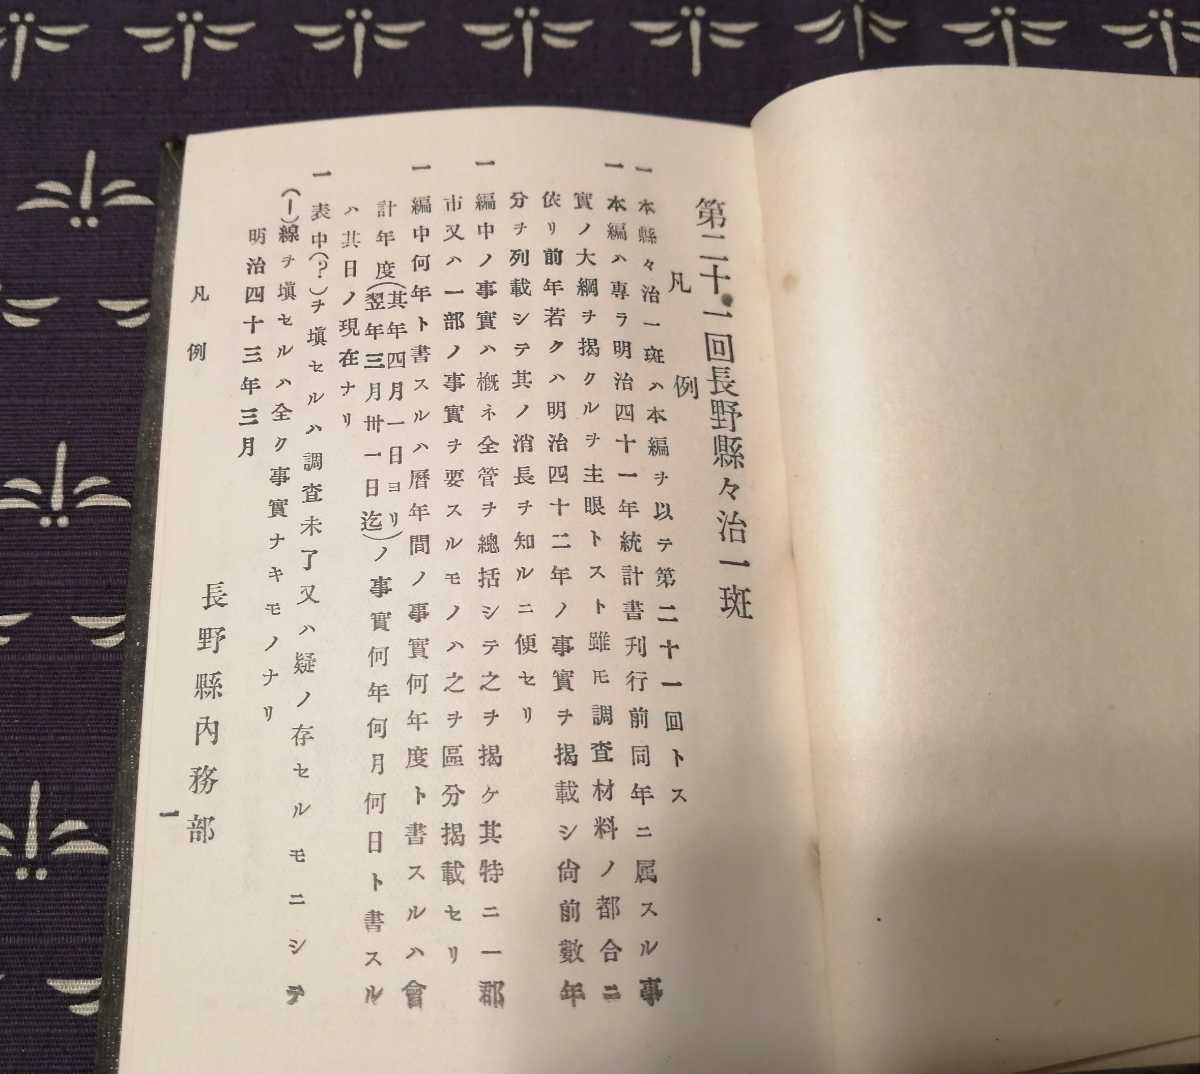 第二十一回長野縣々治一斑
凡例
一 本縣々治一斑ハ本編ヲ以テ第二十一回トス
一 本編ハ専ラ明治四十一年統計書刊行前同年ニ属スル事
實ノ大綱ヲ揭クルヲ主眼トスト雖モ調査材料ノ都合ニ
依リ前年若クハ明治四十二年ノ事實ヲ揭載シ尙前數年
分ヲ列載シテ其ノ消長ヲ知ルニ便セリ
一 編中ノ事實ハ槪ネ全管ヲ總括シテ之ヲ揭ケ其特ニ一郡
市又ハ一部ノ事實ヲ要スルモノハ之ヲ區分揭載セリ
一 編中何年ト書スルハ曆年間ノ事實何年度ト書スルハ會
計年度(其年四月一日ヨリ翌年三月卅一日迄)ノ事實何年何月何日ト書スル
ハ其日ノ現在ナリ
一 表中(?)ヲ塡セルハ調査未了又ハ疑ノ存セルモニシテ
(ー)線ヲ塡セルハ全ク事實ナキモノナリ
明治四十三年三月
長野縣內務部
凡例
一